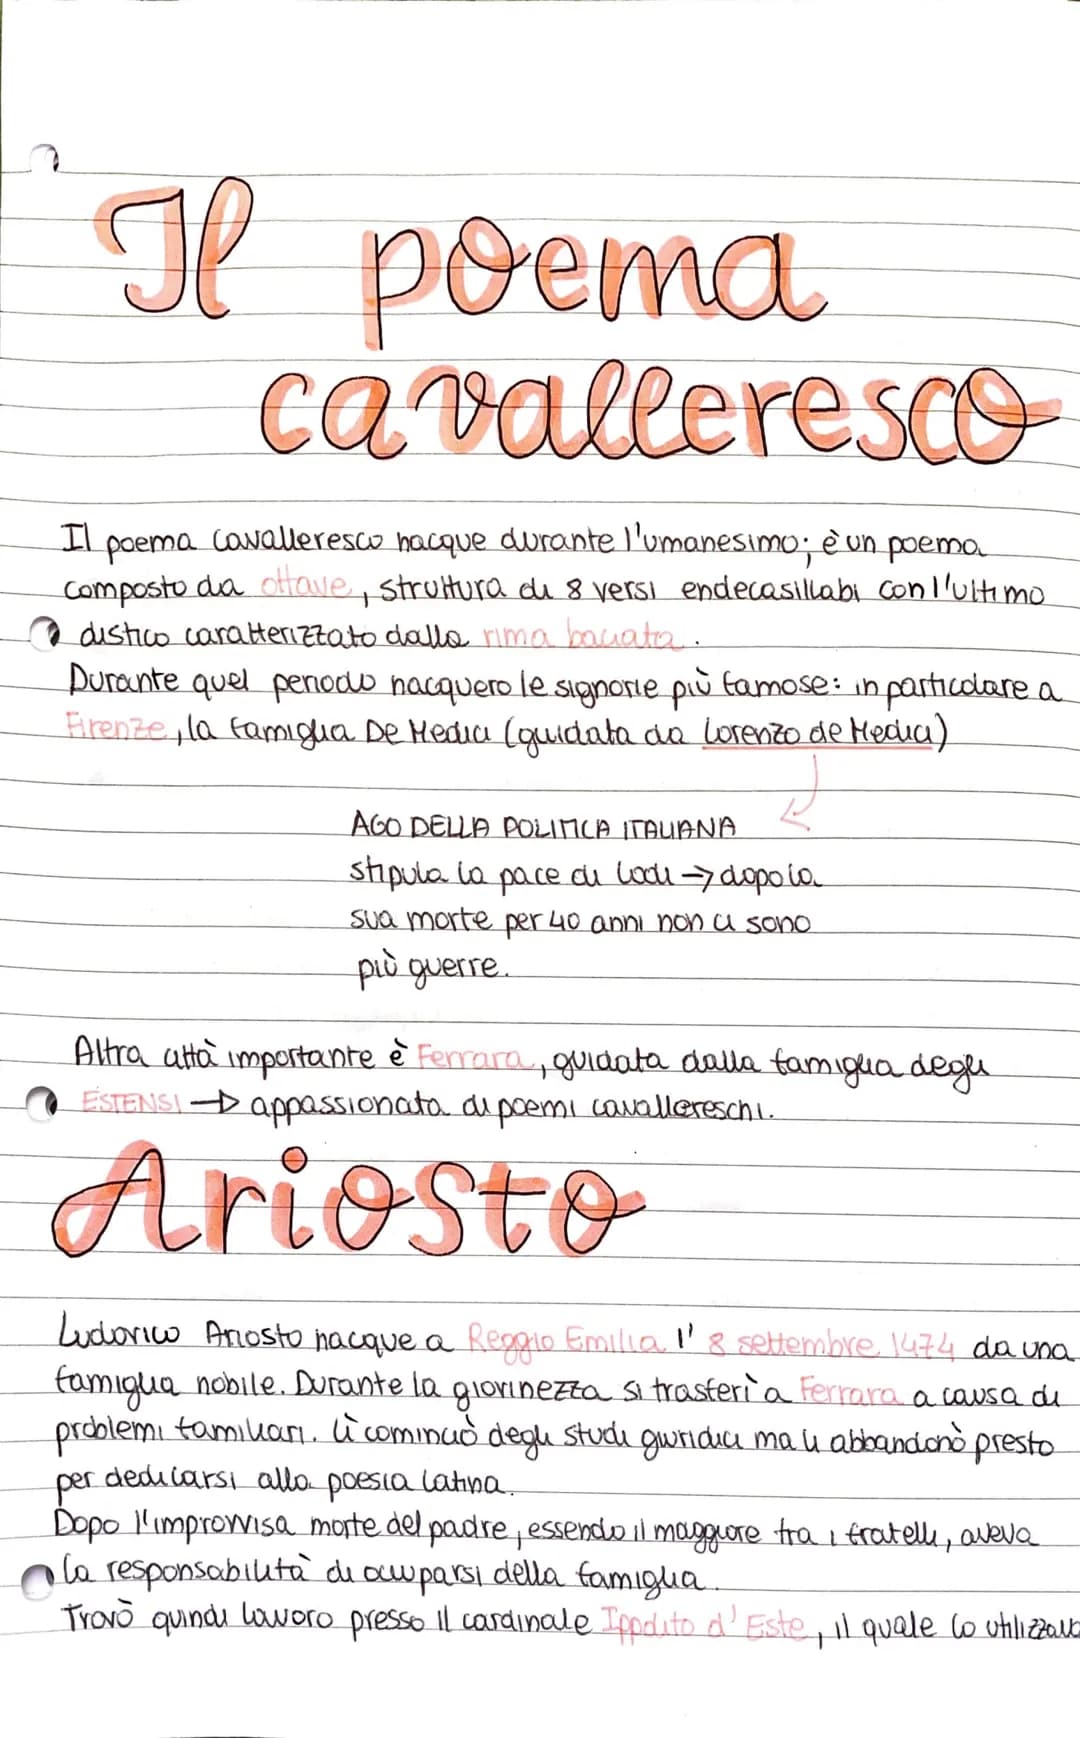 Il poema
cavalleresco
Il poema cavalleresco nacque durante l'umanesimo; è un poema
composto da ottave, struttura di 8 versi endecasillabi con l'ultimo
distico caratterizzato dalla rima baciata.
Durante quel periodo nacquero le signorie più famose: in particolare a
Firenze, la famiglia De Medici (guidata da Lorenzo de Medici)
AGO DELLA POLITICA ITALIANA
stipula la pace di Lodi → dopo la
sua morte per 40 anni non ci sono
più guerre.
Altra città importante è Ferrara, guidata dalla famiglia degli
ESTENSI → appassionata di poemi cavallereschi.
Ariosto
Ludovico Ariosto nacque a Reggio Emilia l'8 settembre 1474 da una
famiglia nobile. Durante la giovinezza si trasferì a Ferrara a causa di
problemi familiari. Lì cominciò degli studi giuridici ma li abbandonò presto
per dedicarsi alla poesia latina.
Dopo l'improvvisa morte del padre, essendo il maggiore fra i fratelli, aveva
la responsabilità di occuparsi della famiglia.
Trovò quindi lavoro presso il cardinale Ippolito d'Este, il quale lo utilizzava